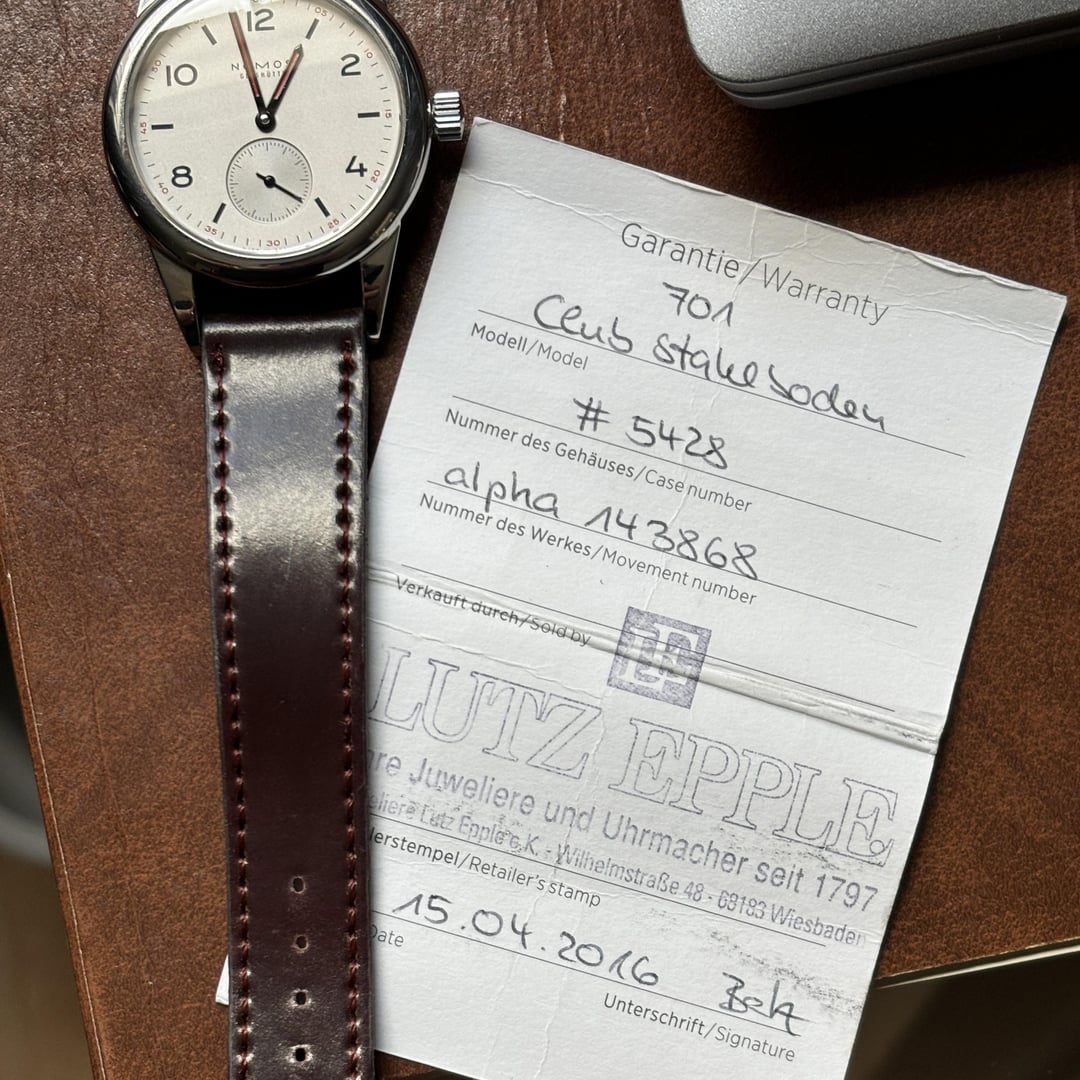 12
2
4
8
10
05
10
15
20
25
30
35
40
45
50
NOMOS
GLASHÜTTE
Garantie/Warranty
701
Club Stahlboden
Modell/Model
# 5428
Nummer des Gehäuses/Case number
alpha 143868
Nummer des Werkes/Movement number
Verkauft durch/Sold by
LE
LUTZ EPPLE
hre Juweliere und Uhrmacher seit 1797
eliere Lutz Epple e.K. - Wilhelmstraße 48 - 68183 Wiesbaden
lerstempel/Retailer's stamp
15.04.2016
Date
Unterschrift/Signature